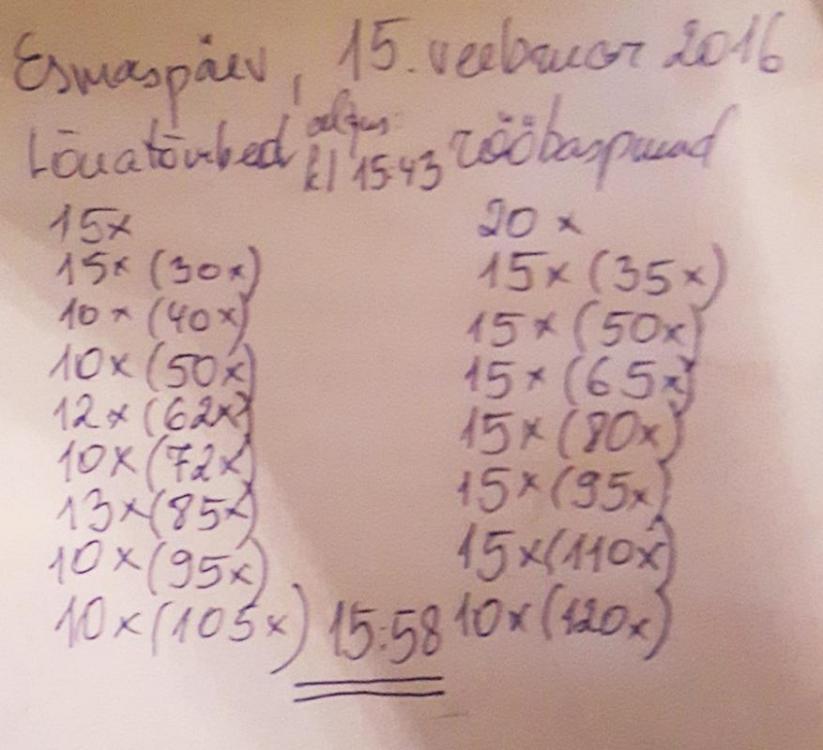 Esmaspäev, 15. veebruar 2016
Lõuatõmbed algus kl 15:43 rööbaspuud
15x 20x
15x (30x) 15x (35x)
10x (40x) 15x (50x)
10x (50x) 15x (65x)
12x (62x) 15x (80x)
10x (72x) 15x (95x)
13x (85x) 15x (110x)
10x (95x) 10x (120x)
10x (105x) 15:58